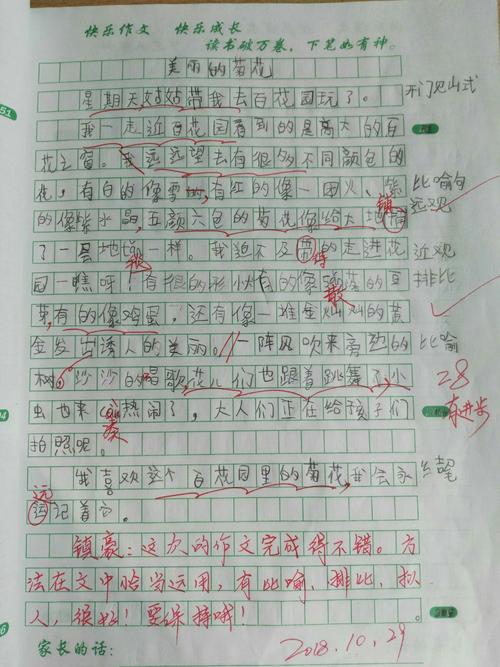 快乐作文 快乐成长
读书破万卷,下笔如有神。
美丽的菊花
星期天,姑姑带我去百花园玩了。 开门见山式
我一走近百花园看到的是高大的百
花之窗。我远远望去有很多不同颜包的
花,有白的像雪,有红的像一团火,紫 比喻句
的像紫水晶,五颜六包的菊花像给大地铺 镇 远观
了一层地毯一样。我迫不及带的走进花 近观
园一瞧呀!有很的形小有的像散落的豆 排比
待
散
荚,有的像鸡蛋,还有像一堆金灿灿的黄
金发出诱人的美丽。//一阵风吹来旁边的 比喻
树,沙沙的唱歌花儿们也跟着跳舞了,小 28
虫也来凑热闹了,大人们正在给孩子们 有进步
凑
拍照呢。
我喜欢这个百花园里的菊花,我会永 结尾
远
远记着它。
镇豪:这次的作文完成得不错。方
法在文中恰当运用,有比喻、排比、拟
人,很好!要保持哦!
家长的话: 2018.10.29